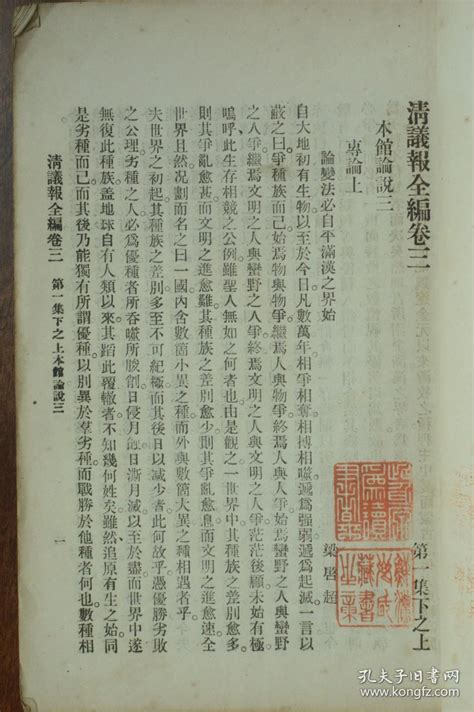 清議報全編卷三
第一集下之上
本館論說三
專論上
論變法必自平滿漢之界始
梁啓超
自大地初有生物以至於今日凡數萬年相爭相奪相搏相噬遞爲强弱遞爲起滅一言以
蔽之曰爭種族而已始焉物與物爭繼焉人與物爭終焉人與人爭始焉蠻野之人與蠻野
之人爭繼焉文明之人與蠻野之人爭終焉文明之人與文明之人爭茫茫後顧未始有極
嗚呼此生存相競之公例雖聖人無如之何者也由是觀之一世界中其種族之差別愈多
則其爭亂愈甚而文明之進愈難其種族之差別愈少則其爭亂愈息而文明之進愈速全
世界且然况劃而名之曰一國內含數箇小異之種而外與數箇大異之種相遇者乎
夫世界之初起其種族之差別多至不可紀極而其後日以減少者此何故乎憑優勝劣敗
之公理劣種之人必爲優種者所吞噬所朘削日侵月蝕日澌月滅以至於盡而世界中遂
無復此種族蓋地球自有人類以來其蹈此覆轍者不知幾何姓矣雖然追原有生之始同
是劣種而已而其後乃能獨有所謂優種以別異於羣劣種而戰勝於他種者何也數種相
清議報全編卷三
第一集下之上本館論說三
一
孔夫子旧书网
kongfz.com